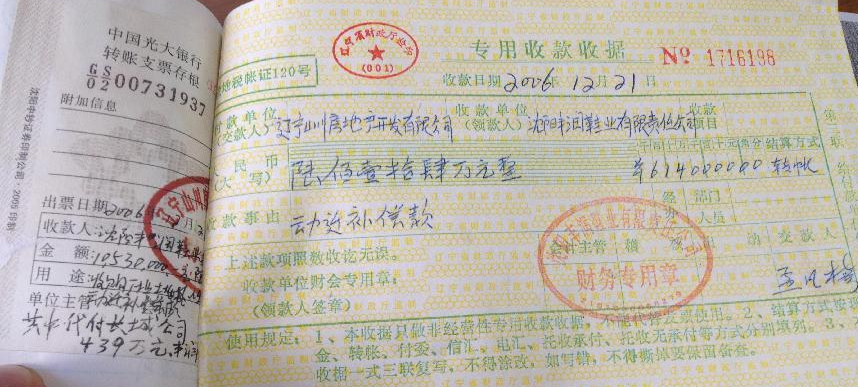 中国光大银行
转账支票存根
GS
02 00731937
附加信息
出票日期2006
收款人:
金 额:10530,000
用 途:
单位主管
其中代付长城公司
439万元
沈阳中钞证券印制公司·2005印制
辽宁省财政厅监制
(001)
专用收款收据
№ 1716198
税帐证120号
收款日期2006年12月21日
付款单位
(交款人)
辽宁山川房地产开发有限公司
收款单位
(领款人)
有限责任公司
收款
项目
人民币
(大写)
陆佰壹拾肆万元整
结算方式
¥614000000 转帐
收款事由
动迁补偿款
经办
部门
人员
上述款项照数收讫无误。
收款单位财会专用章:
(领款人签章)
会计主管
稽核
出纳
交款人
财务专用章
使用规定:1、本收据只做非经营性专用收款收据,不能代替发票使用。2、结算方式按现
金、转帐、付委、信汇、电汇、托收承付、托收无承付等方式分别填列。3、
收据一式三联复写,不得涂改,如写错,不得撕掉要保留备查。